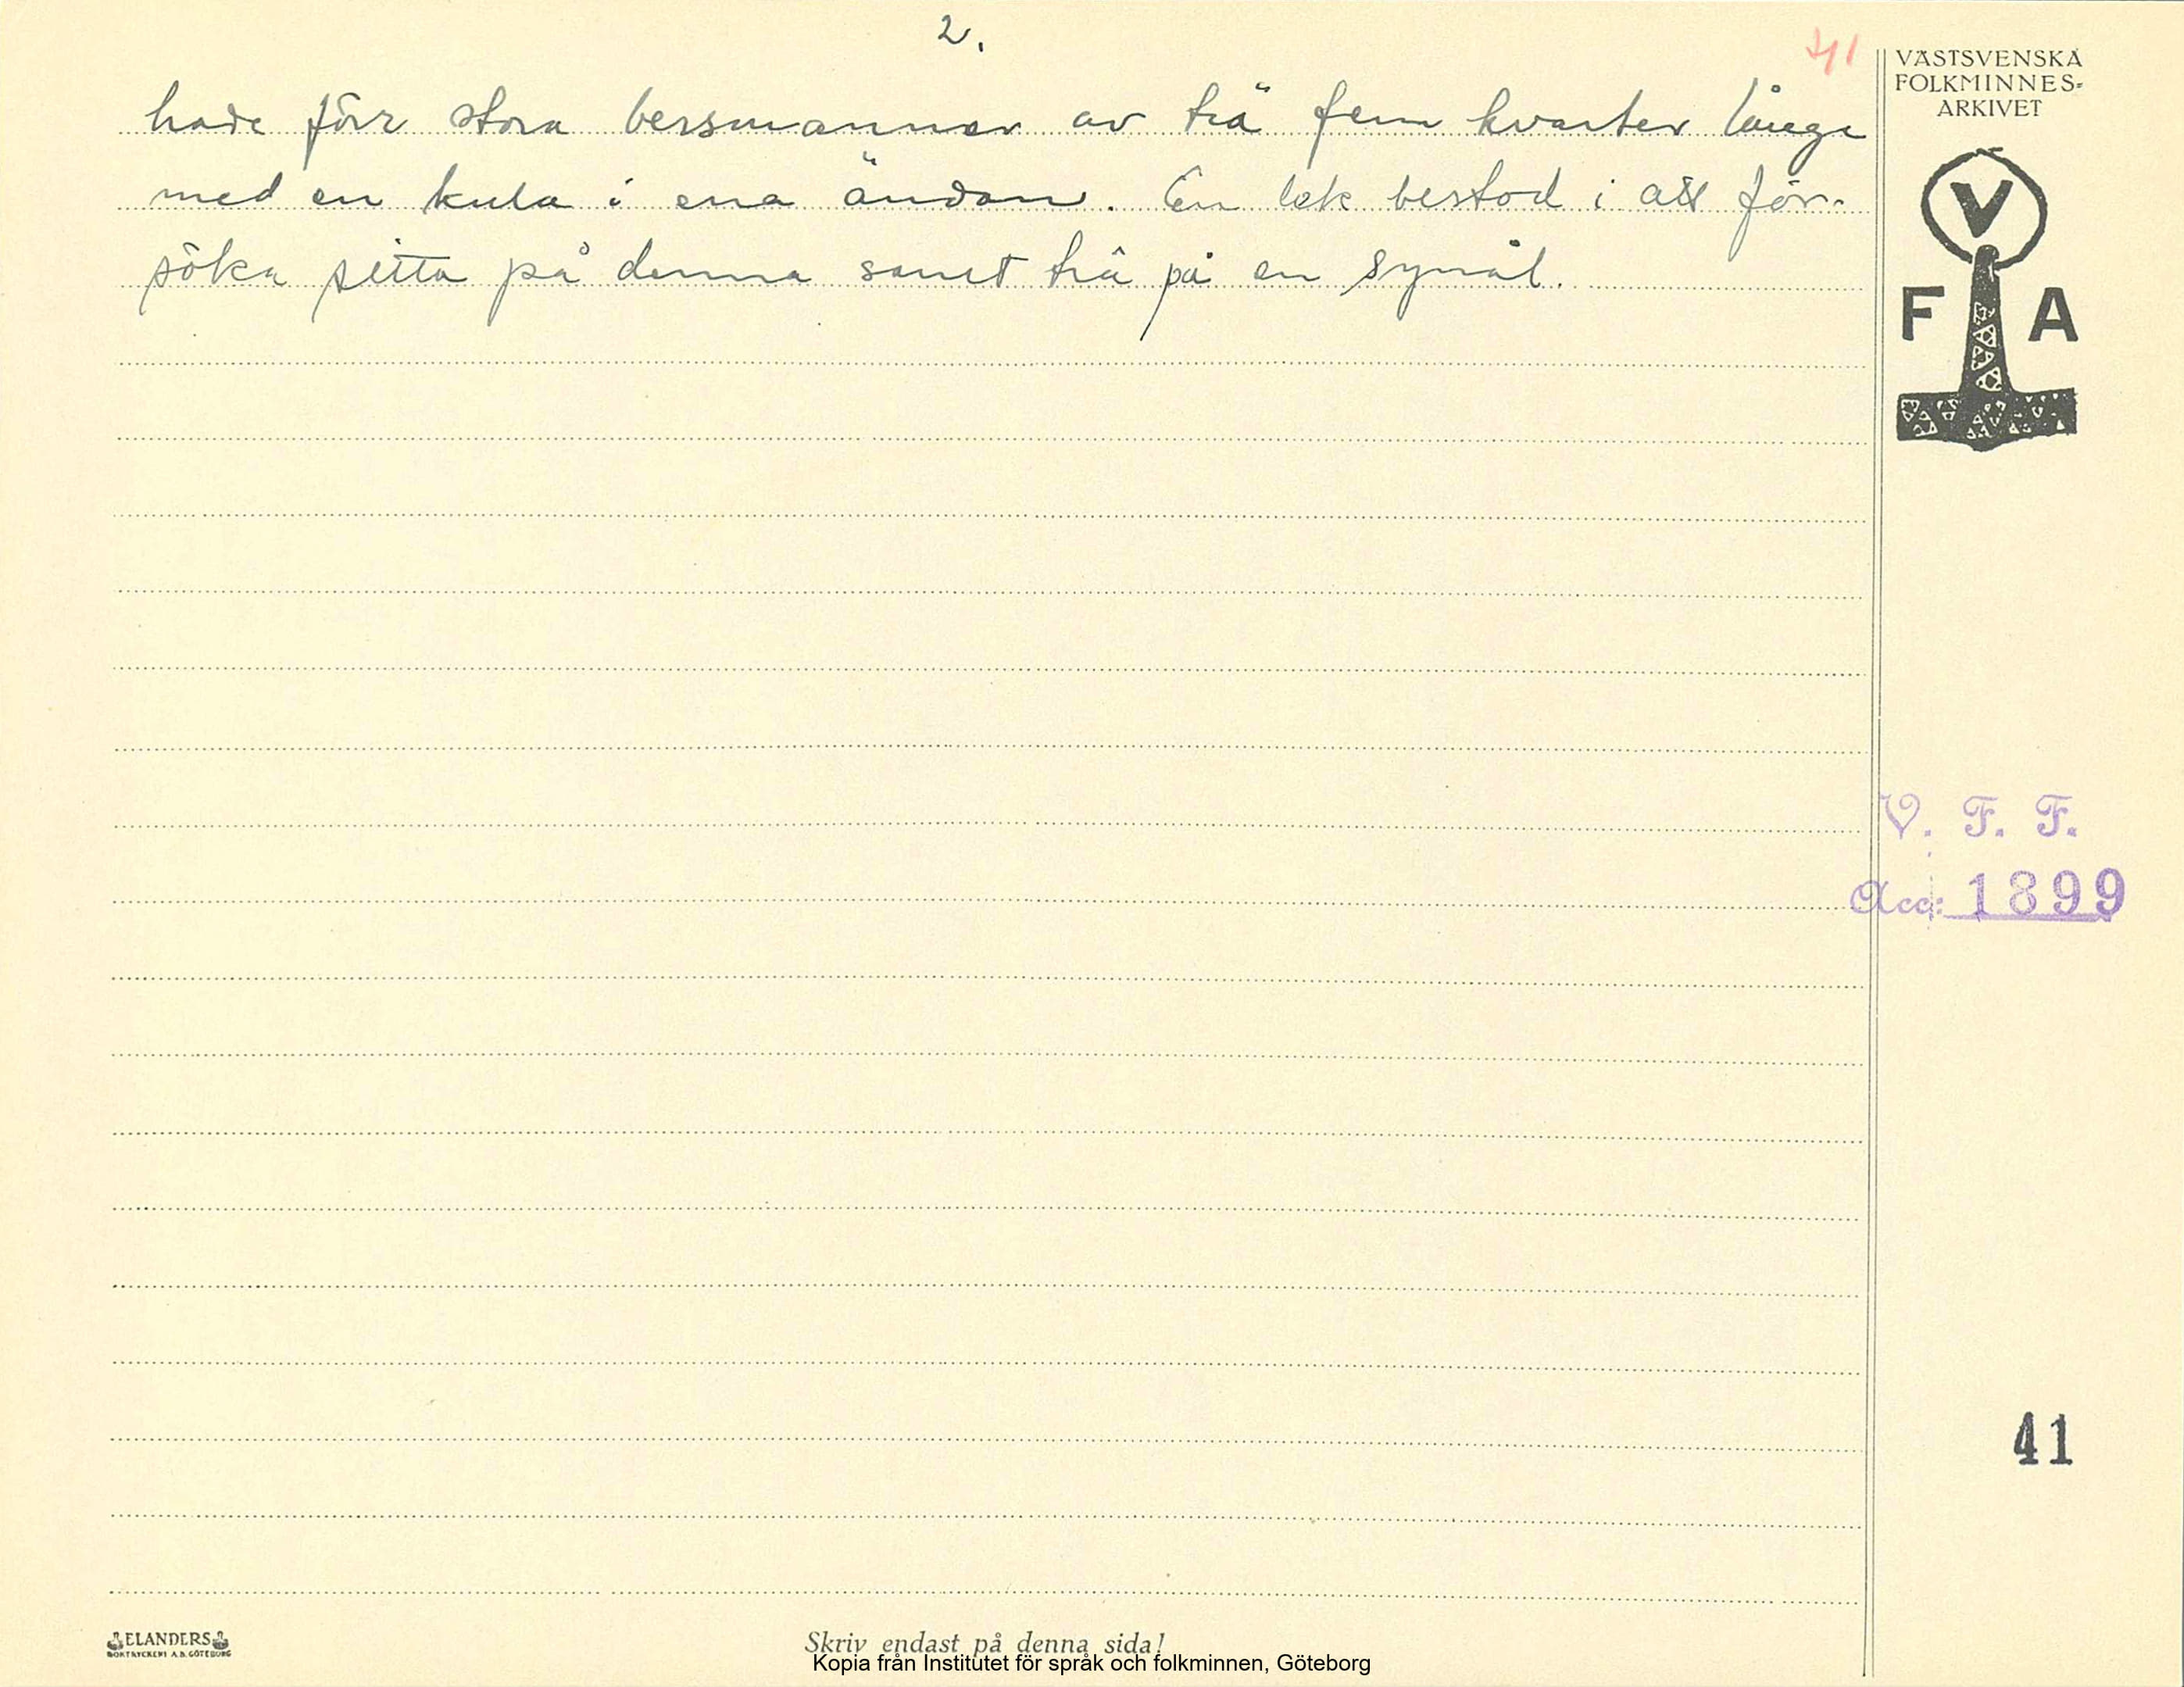 2.
41
hade förr stora bessmannar av trä fem kvarter långa
med en kula i ena ändan. En lek bestod i att för-
söka sitta på denna samt trä på en synål.
VÄSTSVENSKA
FOLKMINNES-
ARKIVET
V
F A
V. F. F.
Acc: 1899
41
ELANDERS
BOKTRYCKERI A.B. GÖTEBORG
Skriv endast på denna sida!
Kopia från Institutet för språk och folkminnen, Göteborg